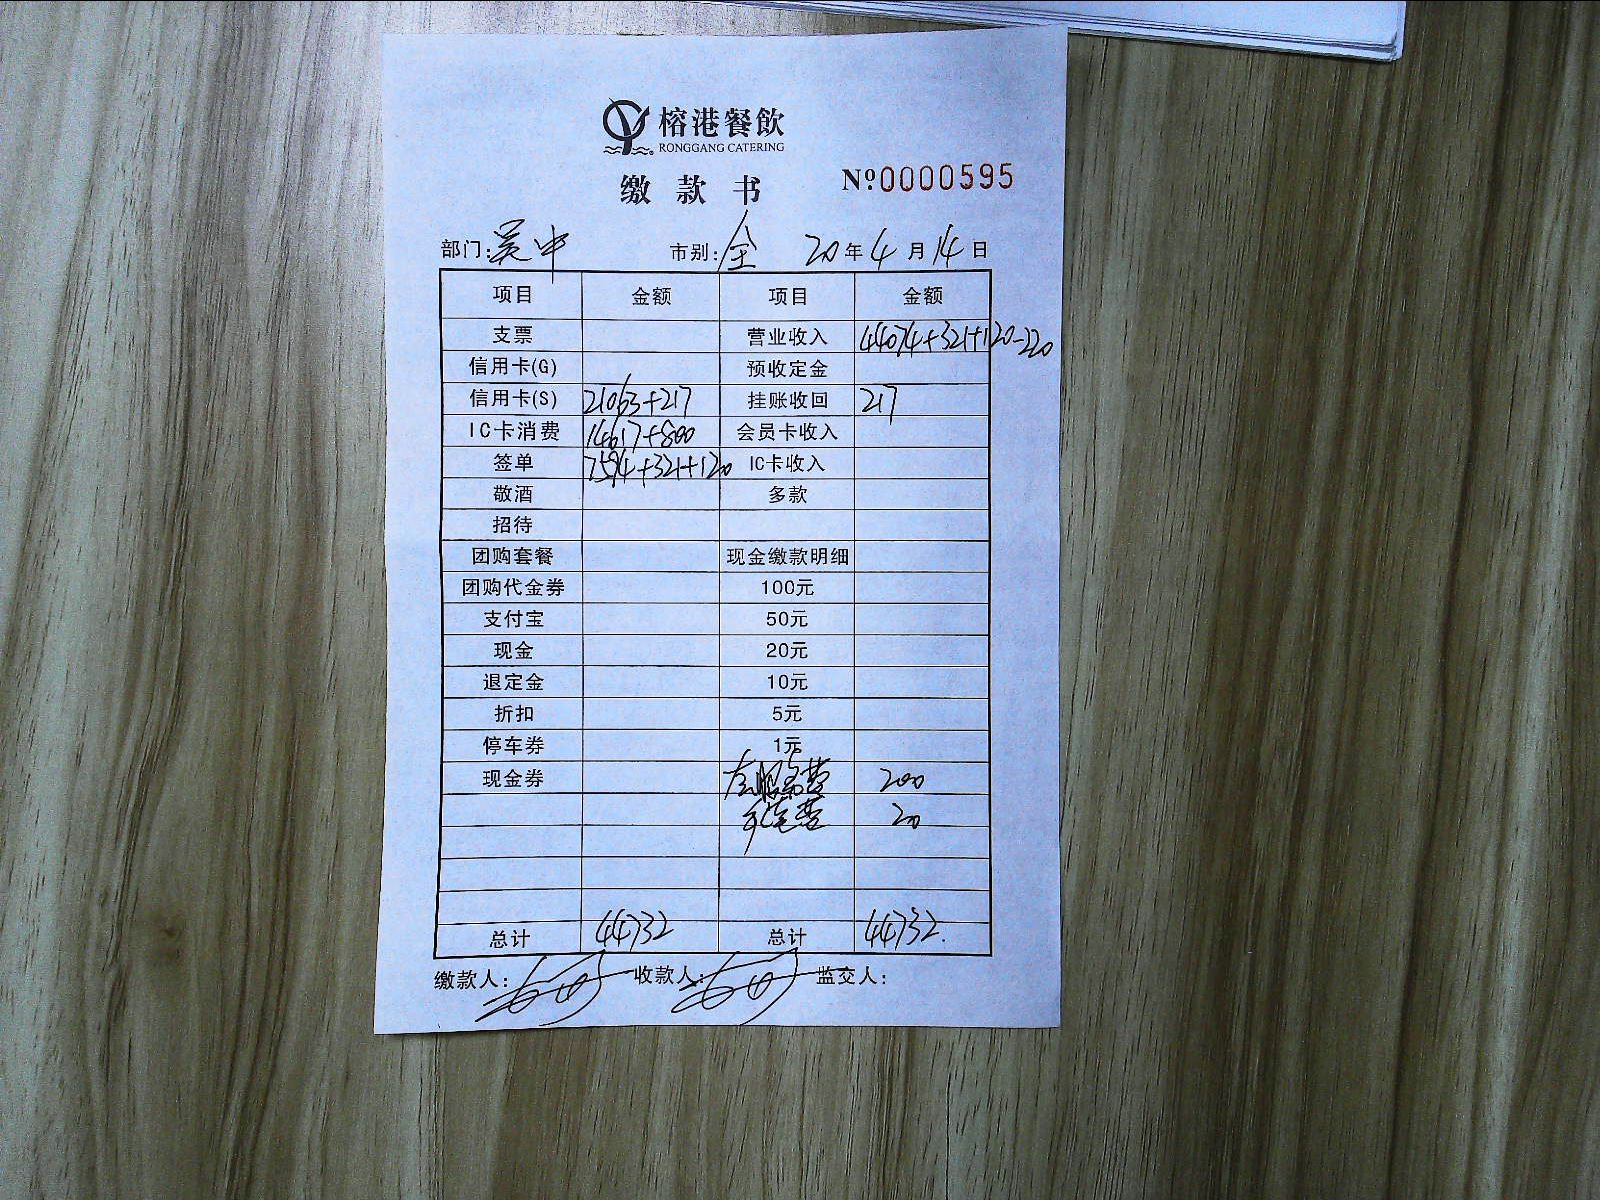 榕港餐飲
RONGGANG CATERING
缴款书 Nº0000595
部门:吴中 市别:全 20年4月14日
项目 金额 项目 金额
支票 营业收入 44074+321+120-220
信用卡(G) 预收定金
信用卡(S) 21063+217 挂账收回 217
IC卡消费 14617+800 会员卡收入
签单 7594+321+120 IC卡收入
敬酒 多款
招待
团购套餐 现金缴款明细
团购代金券 100元
支付宝 50元
现金 20元
退定金 10元
折扣 5元
停车券 1元
现金券 服务费 200
费 20
总计 44732 总计 44732.
缴款人: 收款人: 监交人: